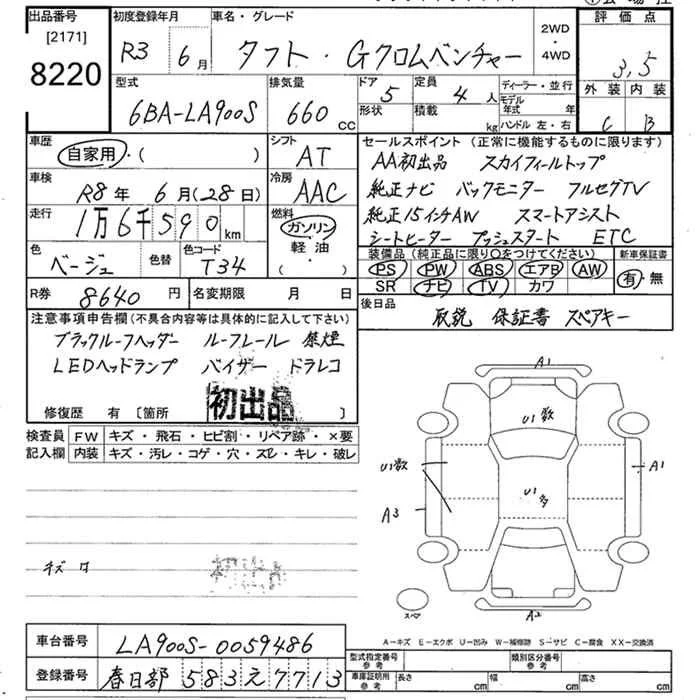 出品番号 初度登録年月 車名・グレード 2WD・4WD 評価点
[2171]
8220 R3 6月 タフト・Gクロムベンチャー 3,5
型式 排気量 ドア 定員 ディーラー・並行 外装 内装
6BA-LA900S 660cc 5 4人 モデル年式 年
形状 積載 kg ハンドル 左・右 C B
車歴 シフト セールスポイント (正常に機能するものに限ります)
自家用・( ) AT AA初出品 スカイフィールトップ
車検 冷房 純正ナビ バックモニター フルセグTV
R8年 6月(28日) AAC
走行 燃料 純正15インチAW スマートアシスト
1万6千590km ガソリン シートヒーター プッシュスタート ETC
色 色替 色コード 軽油 装備品 (純正品に限り○をつけてください) 新車保証書
ベージュ T34 ( ・ ) PS PW ABS エアB AW 有・無
SR ナビ TV カワ
R券 8640円 名変期限 月 日 後日品
注意事項申告欄 (不具合内容等は具体的に記入して下さい) 取説 保証書 スペアキー
ブラックルーフヘッダー ルーフレール 禁煙
LEDヘッドランプ バイザー ドラレコ
初出品
修復歴 有 〔箇所 〕
検査員 FW キズ・飛石・ヒビ割・リペア跡・×要
記入欄 内装 キズ・汚レ・コゲ・穴・スレ・キレ・破レ
A1
U1数
U1数 A1
U1多
A3
キズ 初出品
スペア A2
A-キズ E-エクボ U-凹み W-補修跡 S-サビ C-腐食 XX-交換済
車台番号 LA900S-0059486 型式指定番号 参考 類別区分番号 参考
登録番号 春日部 583 え 7713 車庫証明用 参考 長さ cm 幅 cm 高さ cm